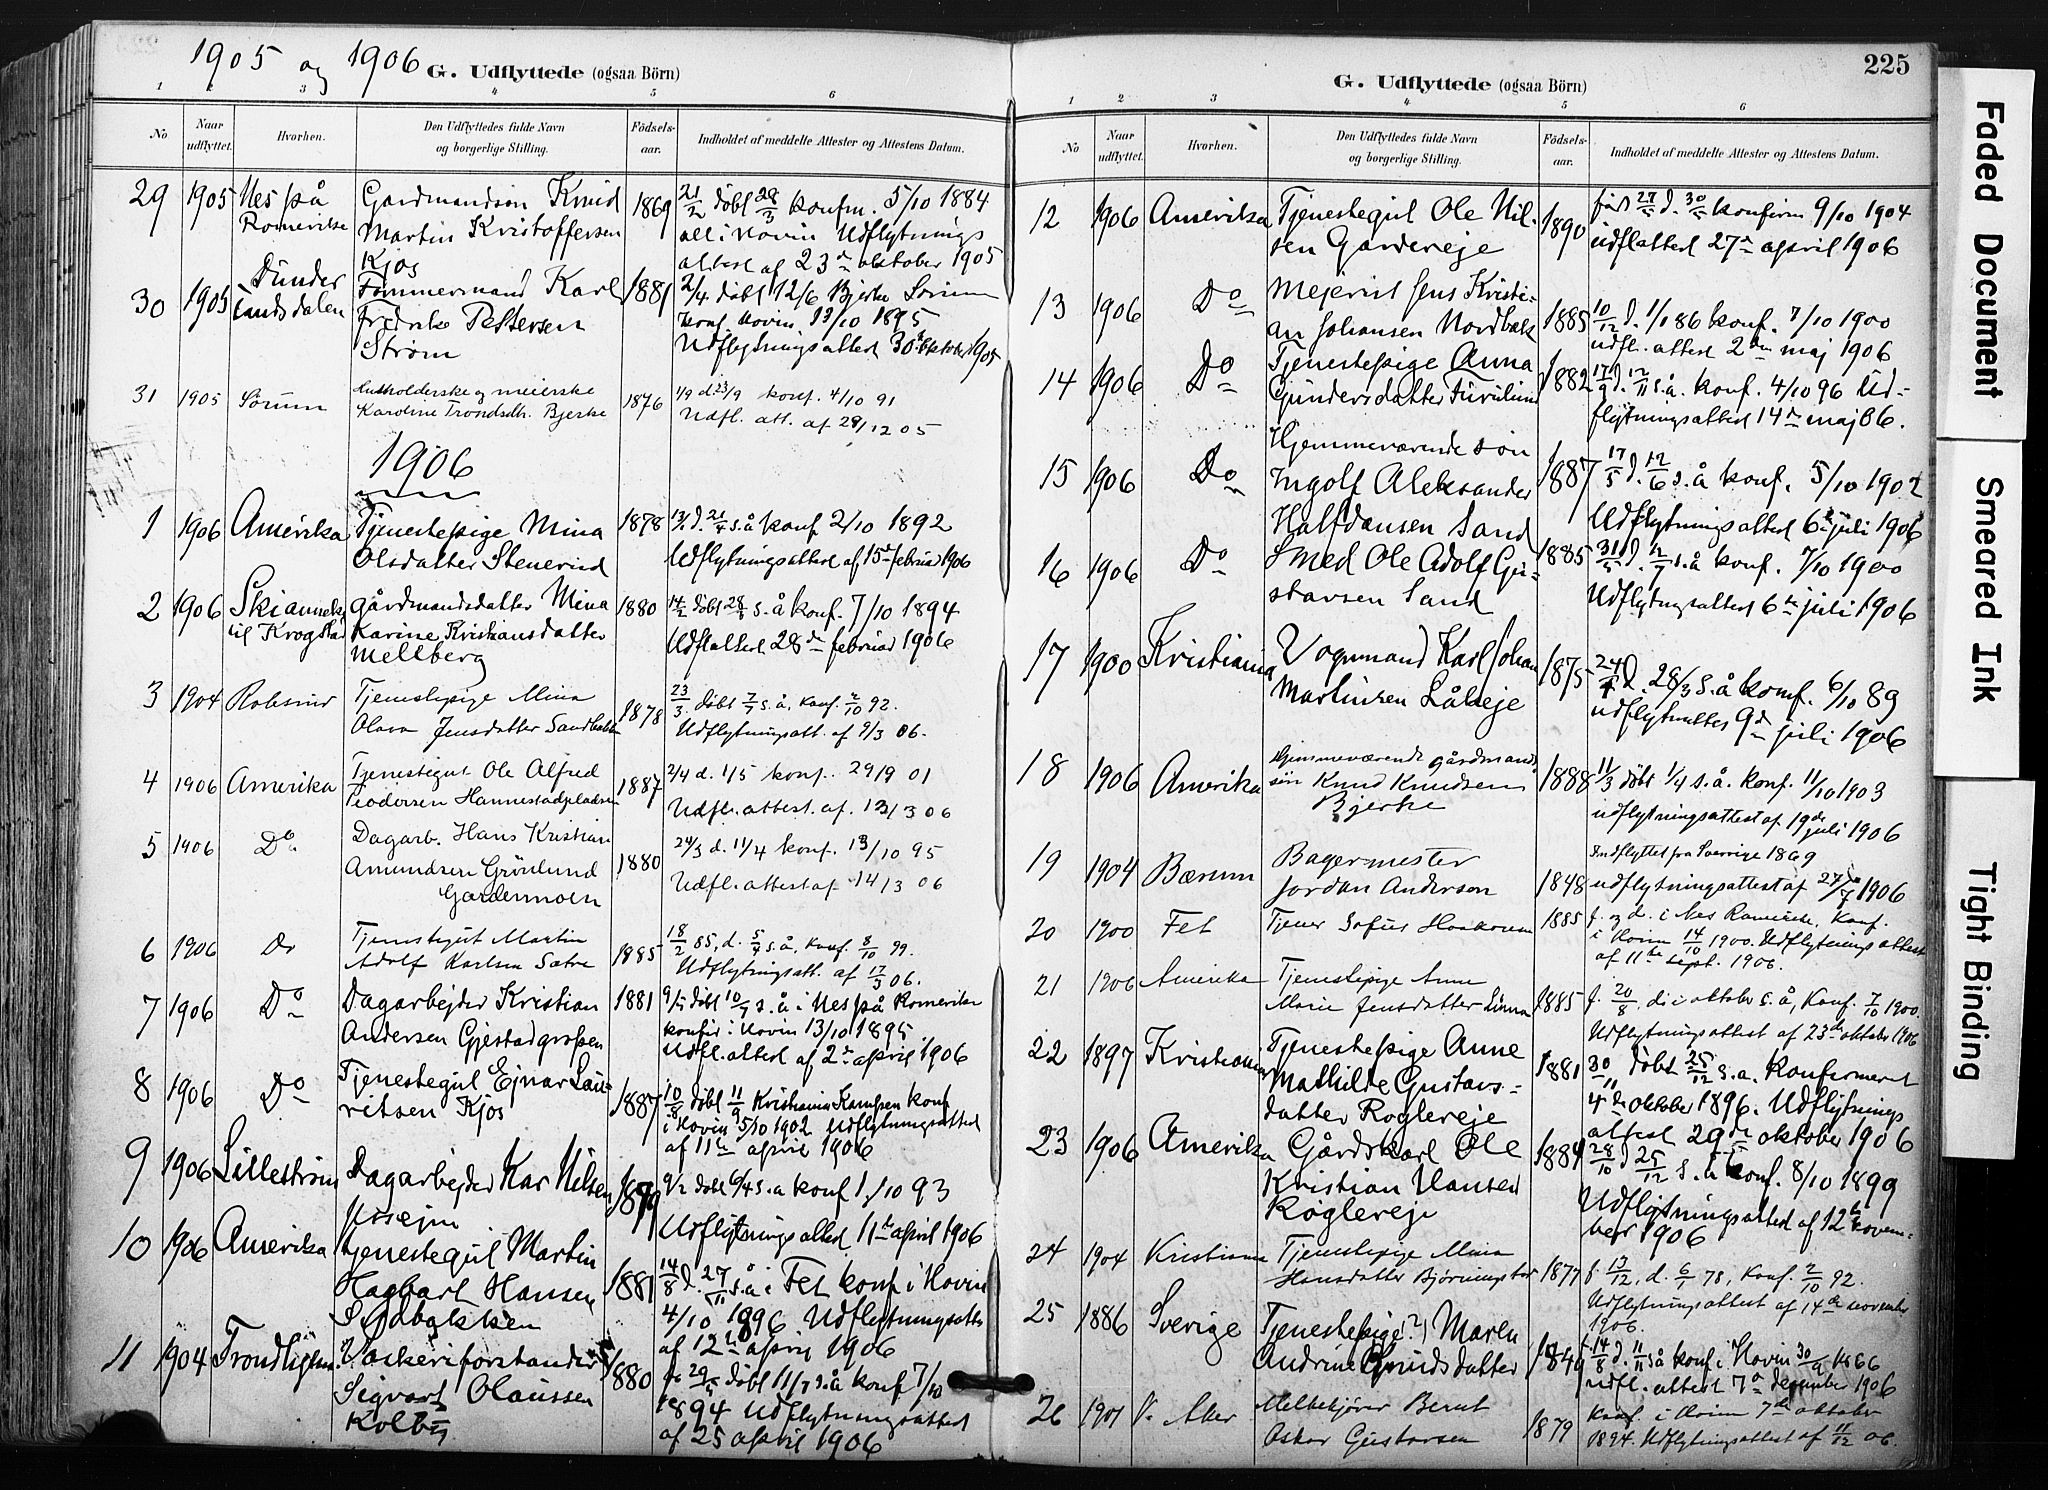 1905 og 1906
G. Udflyttede (ogsaa Börn)
1 2 3 4 5 6
No
Naar udflyttet.
Hvorhen.
Den Udflyttedes fulde Navn og borgerlige Stilling.
Födsels-aar.
Indholdet af meddelte Attester og Attestens Datum.
29 1905 Nes på Gardmandsön Knud 1869 21/2 döbt 28/3 konfm. 5/10 1884
Romerike Martin Kristoffersen all i Hovin Udflytnings
Kjos attest af 23de oktober 1905
30 1905 Dunder Tømmermand Karl 1881 2/4 döbt 12/6 Bjerke Sörum
landsdalen Fredrik Pettersen Konf. Hovin 13/10 1895
Strøm Udflytningsattest 30 oktober 1905
31 1905 Sörum Husholderske og meierske 1876 1/9 d. 23/9 konf. 4/10 91
Karoline Trondsdtr. Bjerke Udfl. att. af 29/12 05
1906
1 1906 Amerika Tjenestepige Mina 1878 d. 21/4 s.å konf 2/10 1892
Olsdatter Stenerud Udflytningsattest af 15de februar 1906
2 1906 Ski anneks gårdmandsdatter Mina 1880 14/2 döbt 28/3 s.å konf. 7/10 1894
til Krogstad Karine Kristiansdatter Udflattest 28de februar 1906
Mellberg
3 1904 Tjenestepige Mina 1878 23/3 döbt s.å, Konf. 2/10 92.
Olava Jensdatter Sandbakken Udflytningsatt. af 9/3 06.
4 1906 Amerika Tjenestegut Ole Alfred 1887 2/4 d. 1/5 konf. 29/9 01
Teodorsen Hannestadpladsen Udfl. attest. af. 12/3 06
5 1906 Do Dagarb. Hans Kristian 1880 24/3 d. 11/4 konf. 13/10 95
Amundsen Grönlund Udfl. attest af 14/3 06
Gardermoen
6 1906 Do Tjenestegut Martin 1885 18/2 85, d. 5/4 s.å, Konf. 8/10 99.
Adolf Karlsen Sætre Udflytningsatt. af 17/3 06.
7 1906 Do Dagarbejder Kristian 1881 9/5 döbt 10/7 s.å i Nes på Romerike
Andersen Gjestadgropen konfir i Hovin 13/10 1895
Udfl. attest af 2de april 1906
8 1906 Do Tjenestegut Ejnar Lau- 1887 10/8 döbt 11/9 Kristiania konf
ritsen Kjos i Hovin 5/10 1902 Udflytningsattest
af 11te april 1906
9 1906 Lilleström Dagarbejder Kar Nilsen 1879 9/2 döbt 6/4 s.a konf 1/10 93
Udflytningsattest 11te april 1906
10 1906 Amerika tjenestegut Martin 1881 14/8 d. 27/11 s.å i Fet konf i Hovin
Hagbart Hansen 4/10 1896 Udflytningsattes
af 12te april 1906
11 1904 Trondhjem Væskeriforstander 1880 fø 29/5 döbt 11/7 s.å konf 7/10
Sigvart Olaussen 1894 Udflytningsattest
Kolby af 25 april 1906
225
G. Udflyttede (ogsaa Börn)
1 2 3 4 5 6
No
Naar udflyttet.
Hvorhen.
Den Udflyttedes fulde Navn og borgerlige Stilling.
Födsels-aar.
Indholdet af meddelte Attester og Attestens Datum.
12 1906 Amerika Tjenestegut Ole Nil- 1890 d. 30/5 konfirm 9/10 1904
sen Gardereje udflattest 27de april 1906
13 1906 Do Mejerist Jens Kristi- 1885 10/12 d. 1/1 86 konf. 7/10 1900
an Johansen Nordbæk udfl. attest 2den maj 1906
14 1906 Do Tjenestepige Anna 1882 17/9 d. 12/11 s.a. konf. 4/10 96 Ud-
Gundersdatter Furulund flytningsattest 14de maj 06.
15 1906 Do Hjemmeværende sön 1887 17/5 d. 12/6 s.å konf. 5/10 1902
Ingolf Aleksander Udflytningsattest 6te juli 1906
Halfdansen Sand
16 1906 Do Smed Ole Adolf Gu- 1885 31/5 d. 12/7 s.å konf. 7/10 1900
stavsen Sand Udflytngsattest 6te juli 1906
17 1900 Kristiania Vognmand Karl Johan 1875 d. 28/3 s.å konf. 6/10 89
Martinsen Låkeje udflytnattes 9de juli 1906
18 1906 Amerika Hjemmeværende gårdmands 1888 11/3 döbt 1/4 s.å. konf. 11/10 1903
sön Knud Knudsen udflytningsattest af 19de juli 1906
Bjerke
19 1904 Bærum Bagermester 1848 Indflyttet fra Sverrige 1869
Jordan Anderson udflytningsattest af 27/7 1906
20 1900 Fet Tjener Sofus 1885 f. og d. i Nes Romerike, Konf.
i Hovin 14/10 1900. Udflytningsattest
af 11te sept. 1906.
21 1906 Amerika Tjenestepige Anne 1885 f. 20/8, d. i oktober s.å, Konf. 7/10 1900.
Marie Jensdatter Linna Udflytningsattest af 23de oktober 1906
22 1897 Kristiania Tjenestepige Anne 1881 30/11 döbt 25/12 s.a. konfirmeret
Mathilde Gustavs- 4de oktober 1896. Udflytnings
datter Roglereje attest 29de oktober 1906
23 1906 Amerika Gårdskarl Ole 1884 28/10 d 25/12 s.å konf. 8/10 1899
Kristian Hansen Udflytningsattest af 12te novem-
Roglereje ber 1906
24 1904 Kristiania Tjenestepige Mina 1877 f. 13/12, d. 6/1 78, Konf. 2/10 92.
Hansdatter Udflytningsattest af 14de november
1906.
25 1886 Sverige Tjenestepige (?) Maren 1849 f. 14/8 d. 11/11 s.å konf. i Hovin 30/9 1866
Andrine Gundsdatter udfl. attest 7de december 1906
26 1901 V. Aker Melkekjörer Bernt 1879 Konf. i Hovin 7de oktober
Oskar Gustavsen 1894. Udflytningsattest af 11/12 06.
Faded Document
Smeared Ink
Tight Binding